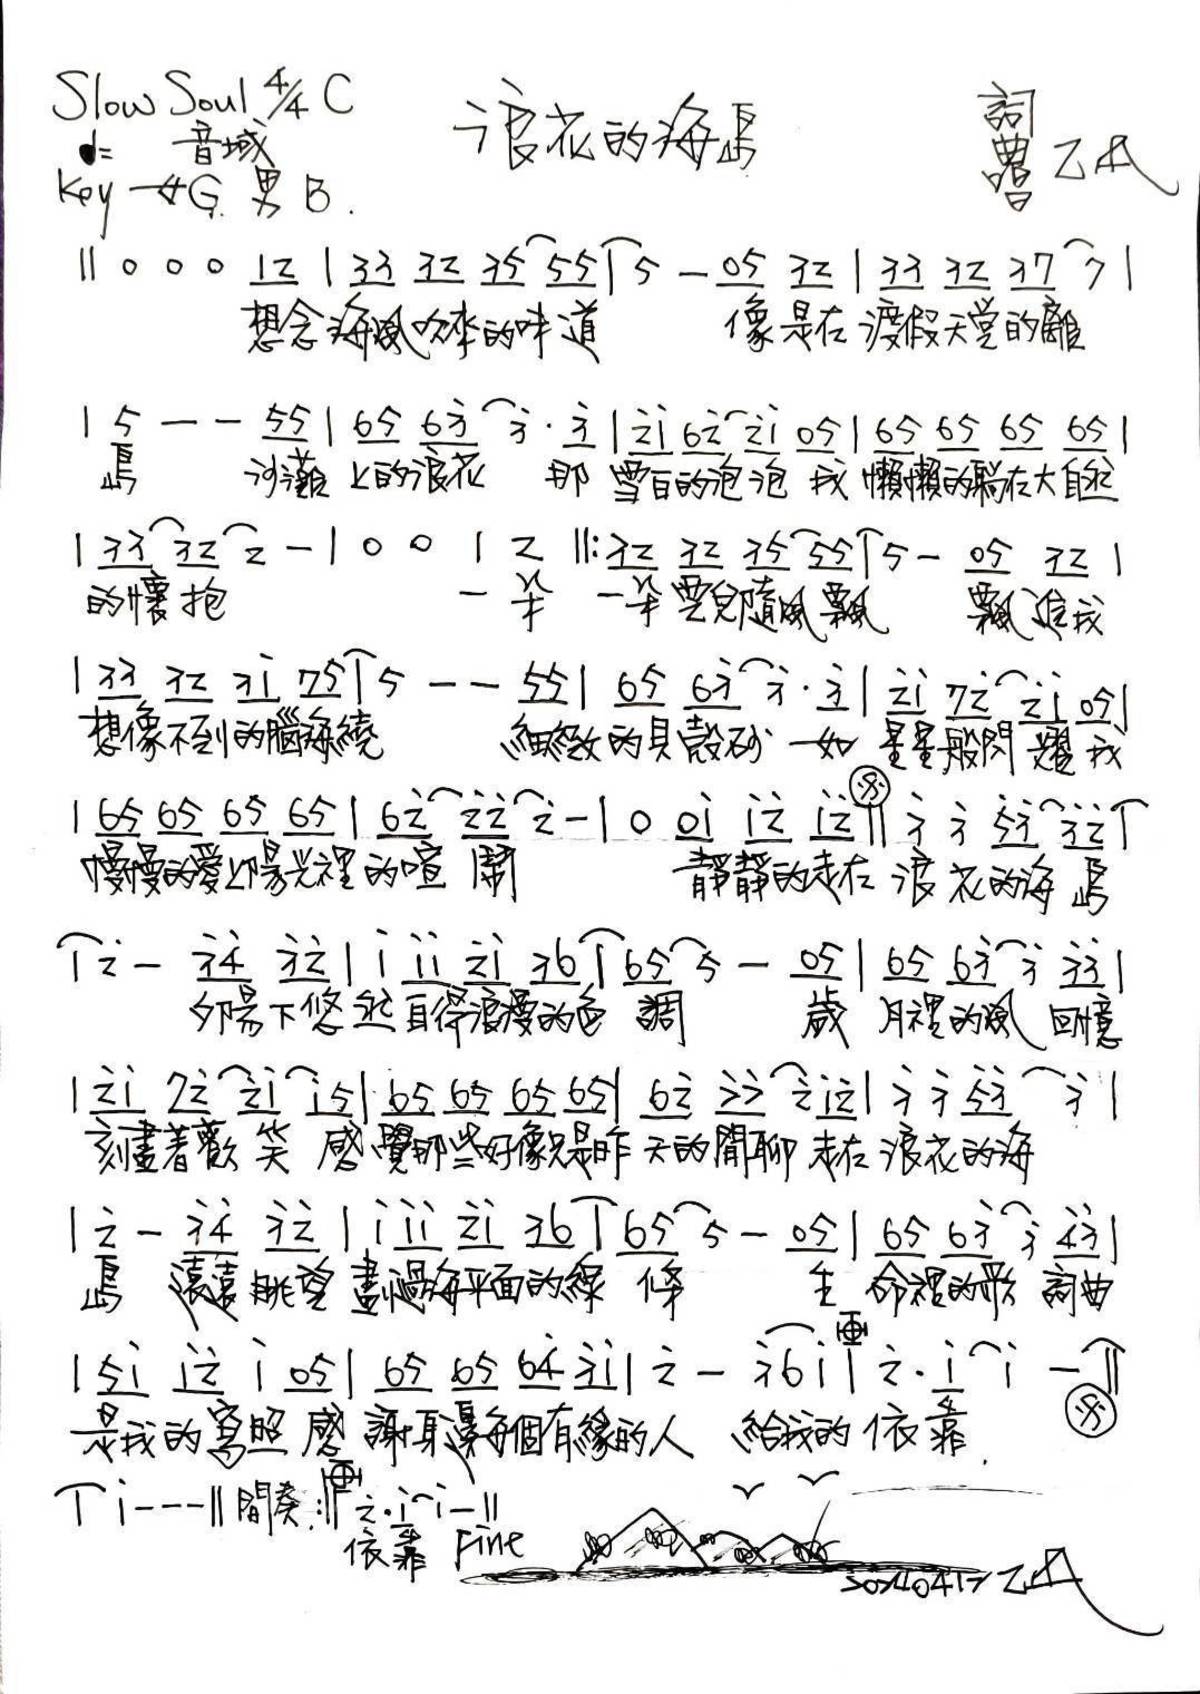 Slow Soul 4/4 C
浪花的海島
詞
曲
♩= 音域
Key 女G. 男B.
|| 0 0 0 12 | 33 32 35 55 | 5 - 05 32 | 33 32 37 7 |
想念海風吹來的味道 像是在渡假天堂的離
| 5 - - 55 | 65 63 3 · 3 | 21 62 21 05 | 65 65 65 65 |
島 沙灘上的浪花 那雪白的泡泡 我懶懶的躺在大自然
| 33 32 2 - | 0 0 1 2 ||: 32 32 35 55 | 5 - 05 32 |
的懷抱 一朵 一朵雲兒隨風飄 飄進我
| 33 32 31 75 | 5 - - 55 | 65 63 3 · 3 | 21 72 21 05 |
想像不到的腦海繞 細緻的貝殼砂 一如星星般閃耀 我
| 65 65 65 65 | 62 22 2 - | 0 01 12 12 || 3 3 53 32 |
慢慢的愛上陽光裡的喧鬧 靜靜的走在浪花的海島
| 2 - 34 32 | 1 11 21 36 | 65 5 - 05 | 65 63 3 33 |
夕陽下悠然自得浪漫的色調 歲月裡的風 回憶
| 21 72 21 15 | 65 65 65 65 | 62 22 2 12 | 3 3 53 3 |
刻畫著歡笑 感覺那些好像只是昨天的閒聊 走在浪花的海
| 2 - 34 32 | 1 11 21 36 | 65 5 - 05 | 65 63 3 43 |
島 遠遠眺望劃過海平面的線條 生命裡的歌 詞曲
| 51 12 1 05 | 65 65 64 31 | 2 - 36 1 | 2 · 1 1 - ||
是我的寫照 感謝身邊每個有緣的人 給我的依靠.
| 1 - - - || 間奏 :|| 2 · 1 1 - ||
依靠 Fine